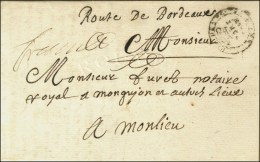 Route de Bordeaux
franche
A Monsieur
Monsieur Furet notaire
royal a monguyon et autres lieux
A monlieu